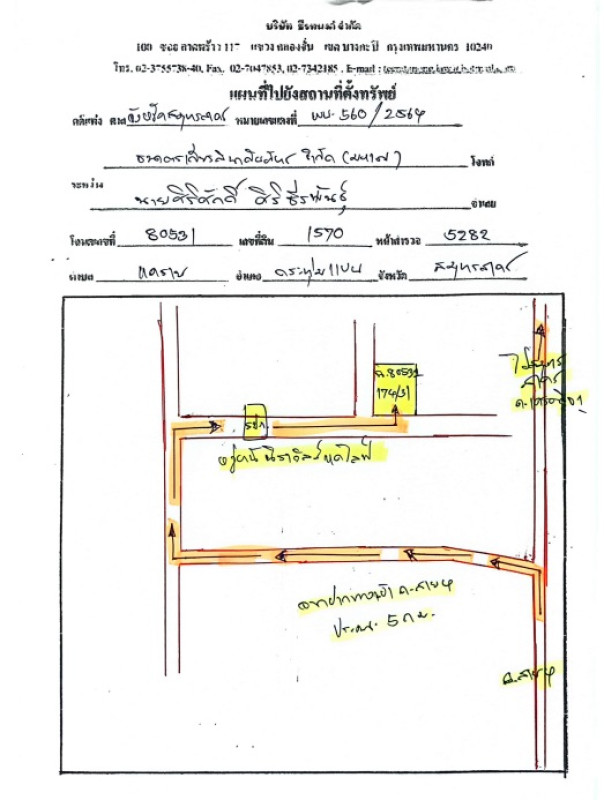 บริษัท ธีรพนงค์ จำกัด
100 ซอย ลาดพร้าว 117 แขวง คลองจั่น เขต บางกะปิ กรุงเทพมหานคร 10240
โทร. 02-3755738-40, Fax. 02-7047853, 02-7342185 , E-mail :
แผนที่ไปยังสถานที่ตั้งทรัพย์
คดีแพ่ง ศาล จังหวัดสมุทรสาคร หมายเลขคดีที่ ผบ. 560/2564
ธนาคารเกียรตินาคินภัทร จำกัด (มหาชน) โจทก์
ระหว่าง
นายศิริศักดิ์ ศิริธีรพันธุ์ จำเลย
โฉนดเลขที่ 80531 เลขที่ดิน 1570 หน้าสำรวจ 5282
ตำบล แคราย อำเภอ กระทุ่มแบน จังหวัด สมุทรสาคร
ฉ.80531
174/31
ไปสมุทร
สาคร
รปภ.
จากปากทางเข้า ถ.สาย 4
ประมาณ 5 กม.
ถ.สาย 4